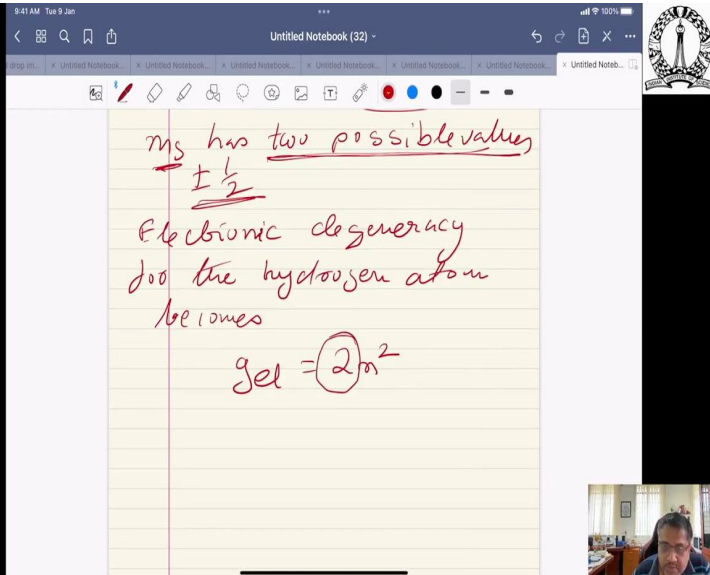 9:41 AM Tue 9 Jan
100%
Untitled Notebook (32)
drop im... × Untitled Notebook... × Untitled Notebook... × Untitled Notebook... × Untitled Notebook... × Untitled Notebook... × Untitled Notebook... × Untitled Noteb...
ms has two possible values
± 1/2
Electronic degeneracy
for the hydrogen atom
becomes
gel = 2n²